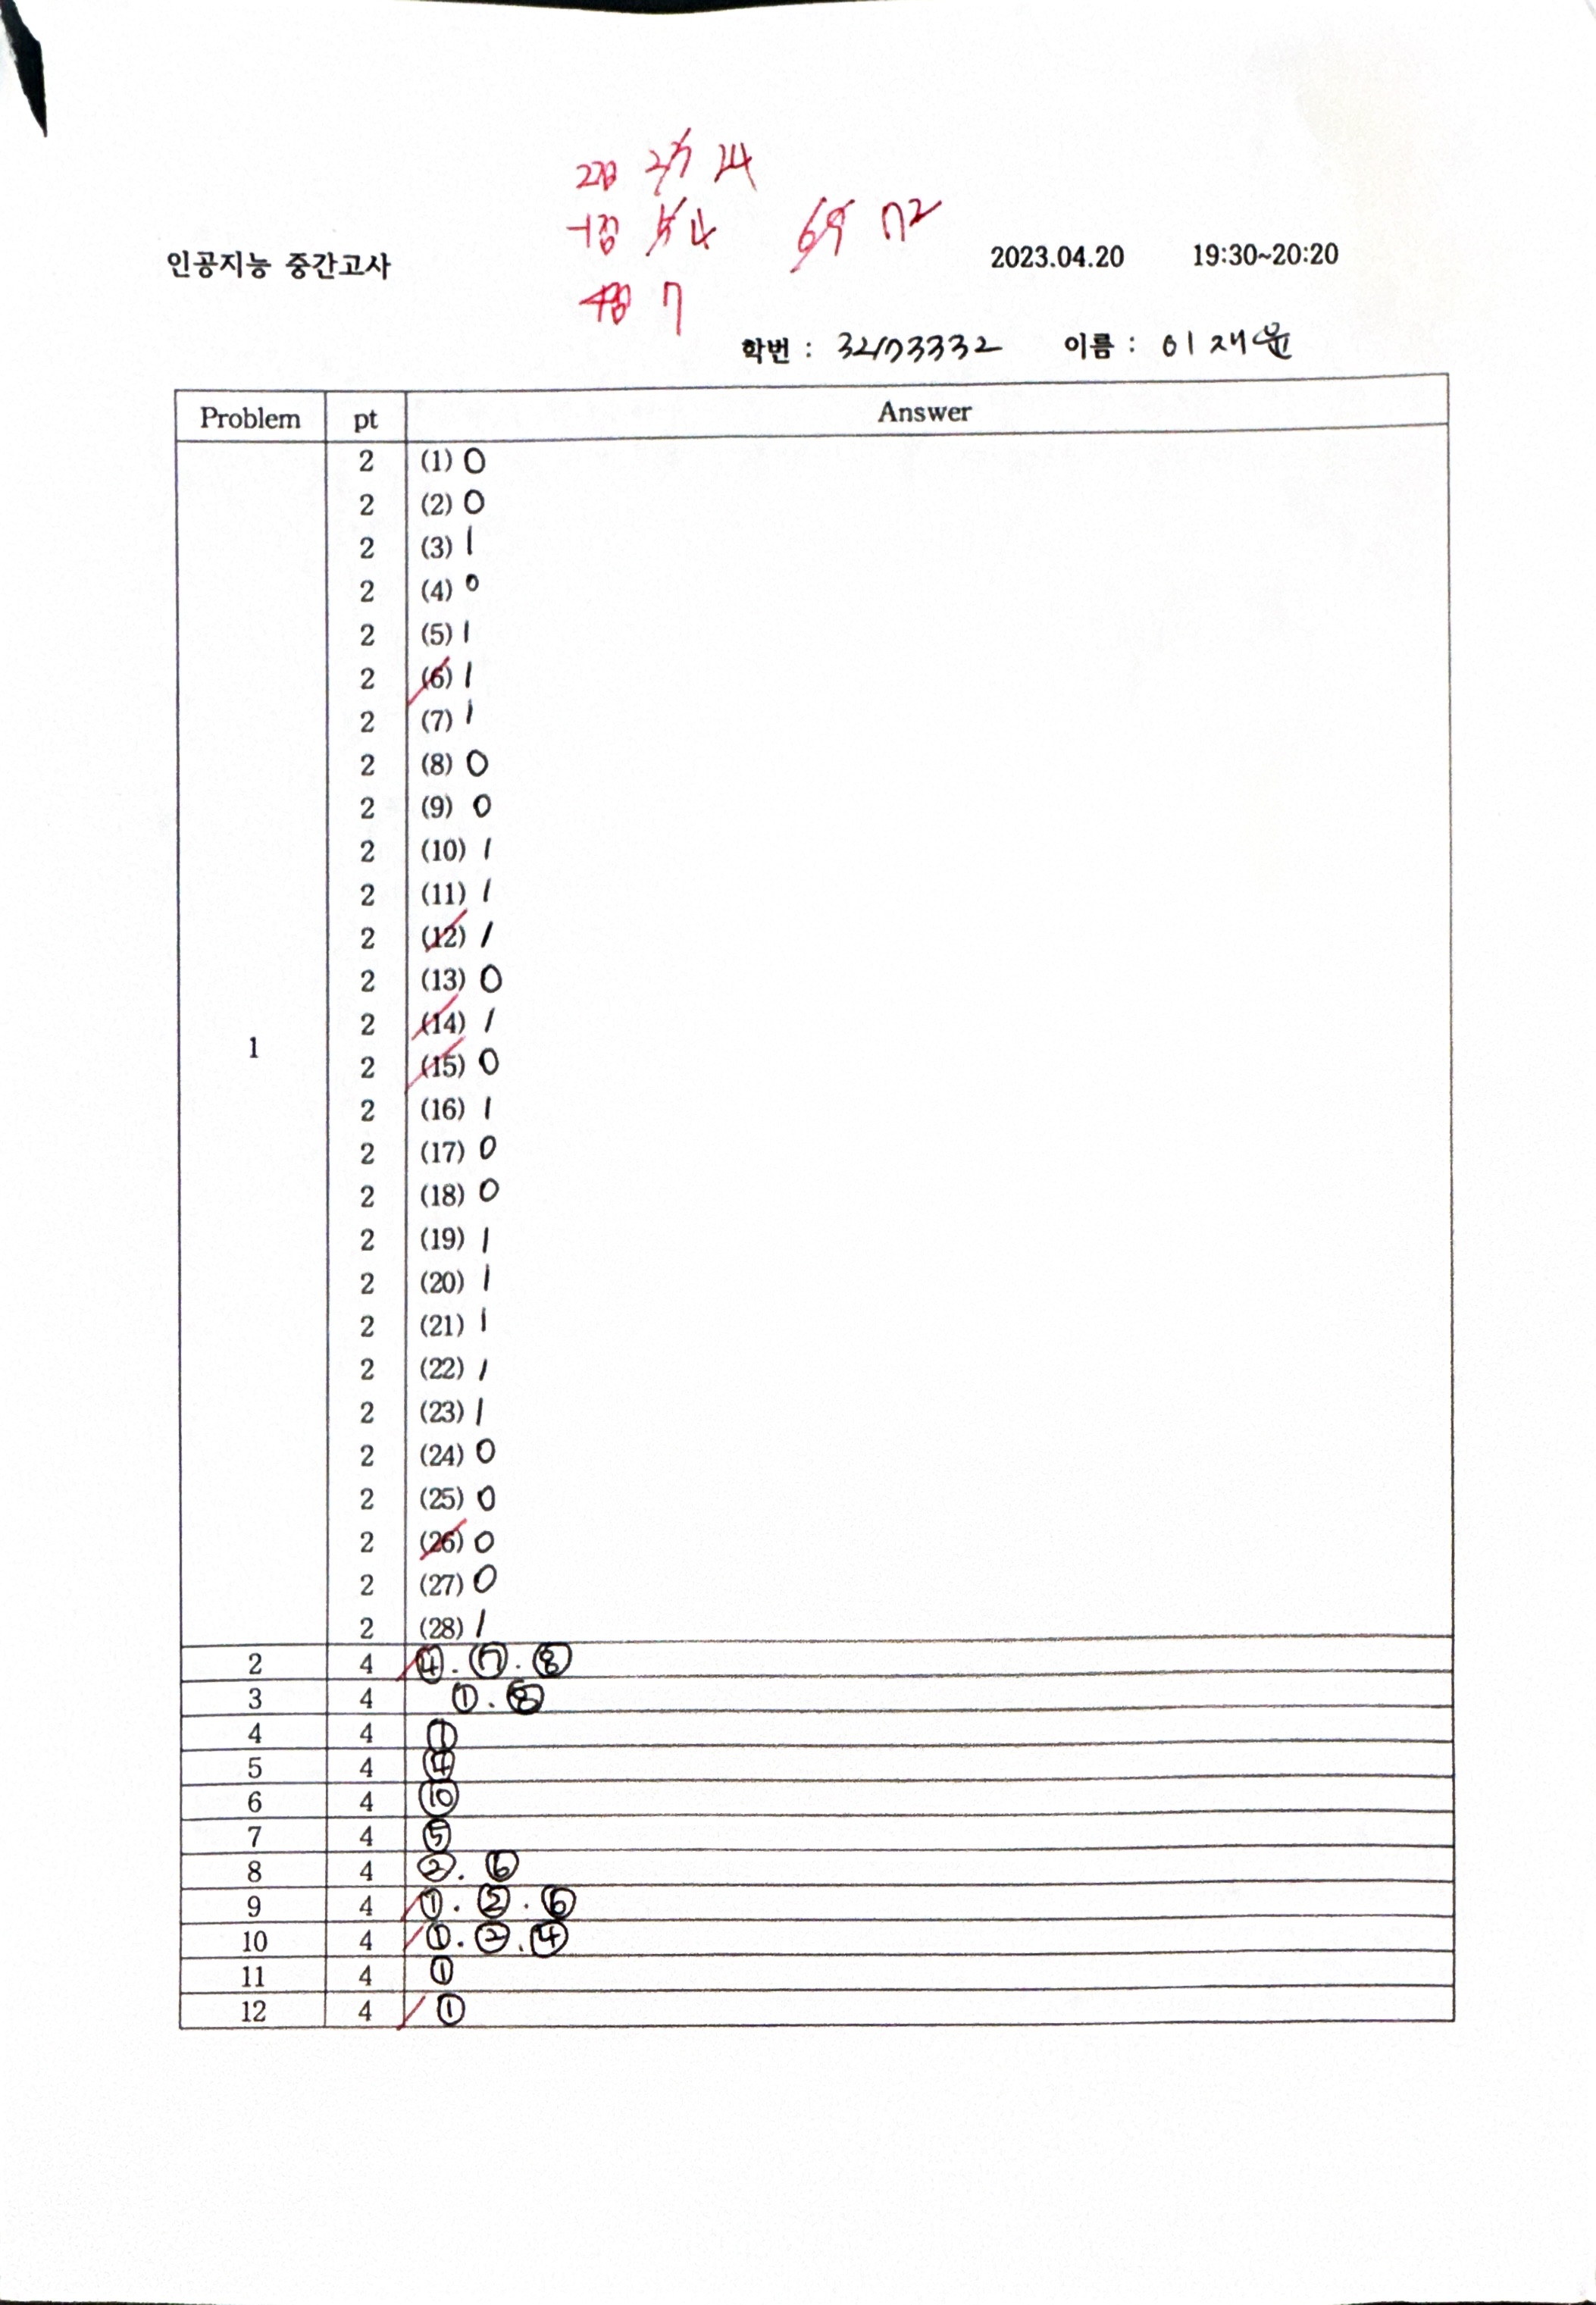 2점 23 24
-1점 5 4 69 72
인공지능 중간고사 2023.04.20 19:30~20:20
4점 7
학번 : 32173332 이름 : 이재윤
Problem pt Answer
2 (1) 0
2 (2) 0
2 (3) 1
2 (4) 0
2 (5) 1
2 (6) 1
2 (7) 1
2 (8) 0
2 (9) 0
2 (10) 1
2 (11) 1
2 (12) 1
2 (13) 0
2 (14) 1
1
2 (15) 0
2 (16) 1
2 (17) 0
2 (18) 0
2 (19) 1
2 (20) 1
2 (21) 1
2 (22) 1
2 (23) 1
2 (24) 0
2 (25) 0
2 (26) 0
2 (27) 0
2 (28) 1
2 4 ④. ⑦. ⑧
3 4 ①. ⑧
4 4 ①
5 4 ④
6 4 ⑩
7 4 ⑤
8 4 ②. ⑥
9 4 ①. ②. ⑥
10 4 ①. ②. ④
11 4 ①
12 4 ①